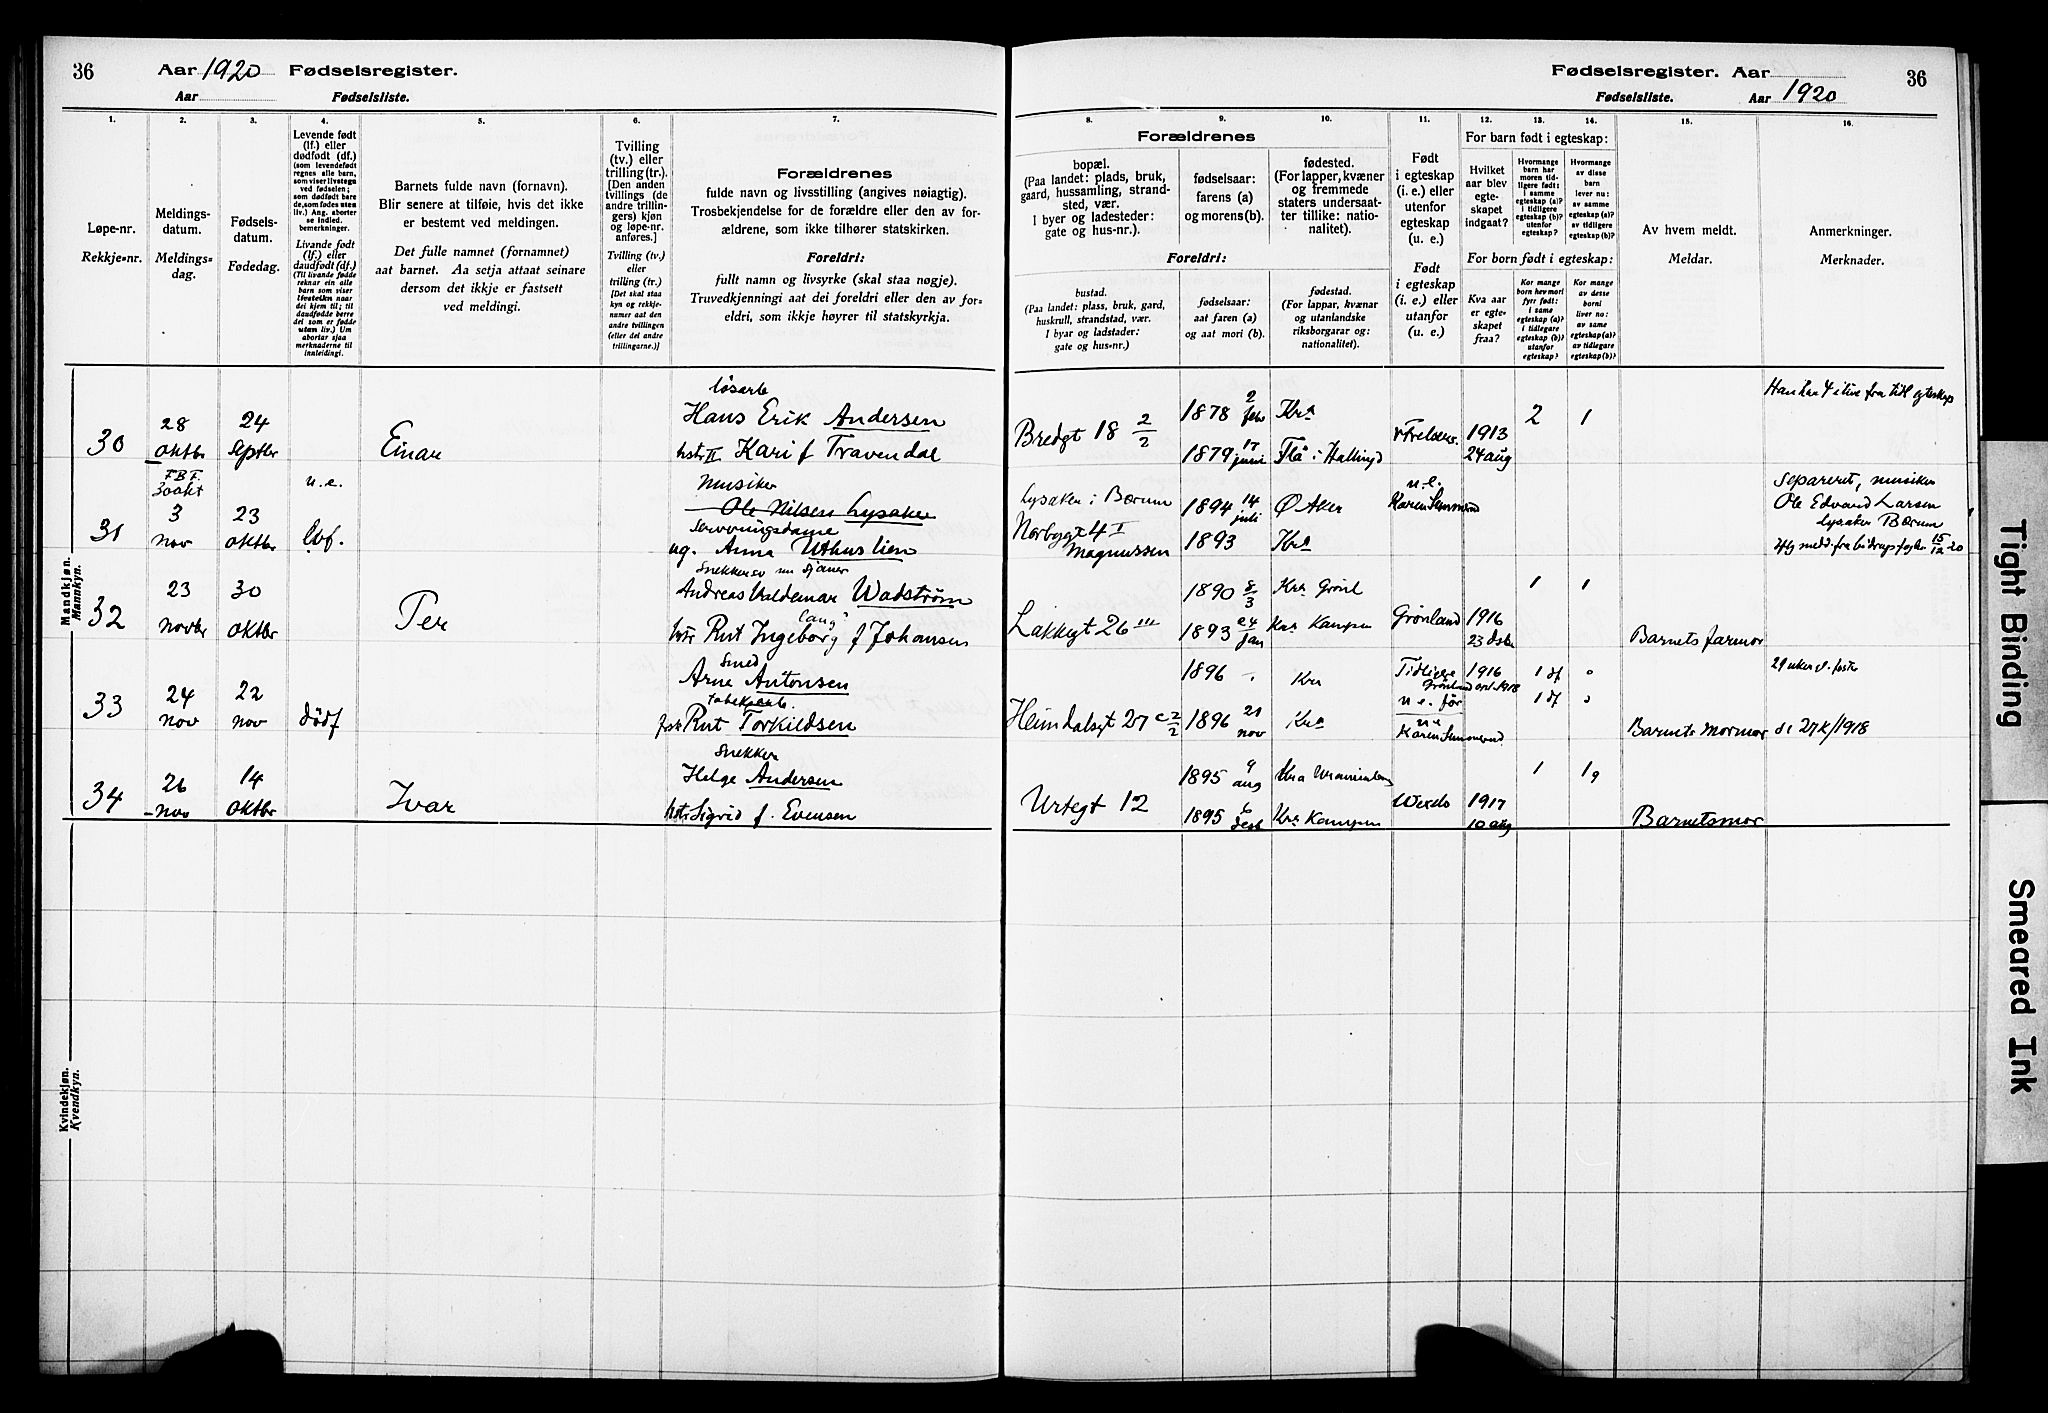 36 Aar 1920 Fødselsregister.
Aar Fødselsliste.
1. 2. 3. 4. 5. 6. 7.
Løpe-nr.
Rekkje-nr.
Meldings-
datum.
Meldings-
dag.
Fødsels-
datum.
Fødedag.
Levende født
(lf.) eller
dødfødt (df.)
(som levendefødt
regnes alle barn,
som viser livstegn
ved fødselen;
som dødfødt bare
de, som fødes uten
liv.) Ang. aborter
se indled.
bemerkninger.
Livande født
(lf.) eller
daudfødt (df.)
(Til livande fødde
reknar ein alle
barn som viser
livsteikn naar
dei kjem til; til
daudfødde berre
dei som er fødde
utan liv.) Um
abortar sjaa
merknaderne til
innleidingi.
Barnets fulde navn (fornavn).
Blir senere at tilføie, hvis det ikke
er bestemt ved meldingen.
Det fulle namnet (fornamnet)
aat barnet. Aa setja attaat seinare
dersom det ikkje er fastsett
ved meldingi.
Tvilling
(tv.) eller
trilling (tr.).
[Den anden
tvillings (de
andre trillin-
gers) kjøn
og løpe-nr.
anføres.]
Tvilling (tv.)
eller
trilling (tr.)
[Det skal staa
kyn og rekkje-
numer aat den
andre tvillingen
(eller dei andre
trillingarne.)]
Forældrenes
fulde navn og livsstilling (angives nøiagtig).
Trosbekjendelse for de forældre eller den av for-
ældrene, som ikke tilhører statskirken.
Foreldri:
fullt namn og livsyrke (skal staa nøgje).
Truvedkjenningi aat dei foreldri eller den av for-
eldri, som ikkje høyrer til statskyrkja.
Mandkjøn.
Mannkyn.
Kvindekjøn.
Kvendkyn.
løsarb
30 28 24 Hans Erik Andersen
oktbr Septbr Einar hstr II Kari f Travendal
F.B.F.
30 okt u.e. Musiker
31 3 23 Ole Nilsen Lysaker
nov oktbr lvf. Serveringsdame
ug. Anna Uthuslien
32 23 30 Andreas Valdemar Wadstrøm
novbr oktbr Per hstr Rut Ingeborg f Johansen
Smed
33 24 22 Arne Antonsen
nov nov dødf Rut Torkildsen
Snekker
34 26 14 Helge Andersen
nov oktbr Ivar hstr Sigrid f. Evensen
Fødselsregister. Aar 36
Fødselsliste. Aar 1920
8. 9. 10. 11. 12. 13. 14. 15. 16.
Forældrenes
bopæl.
(Paa landet: plads, bruk,
gaard, hussamling, strand-
sted, vær.
I byer og ladesteder:
gate og hus-nr.).
fødselsaar:
farens (a)
og morens (b).
fødested.
(For lapper, kvæner
og fremmede
staters undersaat-
ter tillike: natio-
nalitet).
Foreldri:
bustad.
(Paa landet: plass, bruk, gard,
huskrull, strandstad, vær.
I byar og ladstader:
gate og hus-nr.)
fødselsaar:
aat faren (a)
og aat mori (b).
fødestad.
(For lappar, kvænar
og utanlandske
riksborgarar og:
nationalitet).
Født
i egteskap
(i. e.) eller
utenfor
egteskap
(u. e.)
Født
i egteskap
(i. e.) eller
utanfor
(u. e.)
For barn født i egteskap:
Hvilket
aar blev
egte-
skapet
indgaat?
Hvormange
barn har
moren tid-
ligere født:
i samme
egteskap (a)?
i tidligere
egteskap (b)?
utenfor
egteskap?
Hvormange
av disse
barn
lever nu:
av samme
egteskap (a)?
av tidligere
egteskap (b)?
For born født i egteskap:
Kva aar
er egte-
skapet
fraa?
Kor mange
born hev mori
fyrr født:
i same
egteskap (a)?
i tidlegare
egteskap (b)?
utanfor
egteskap?
Kor mange
av desse
borni
liver nu:
av same
egteskap (a)?
av tidlegare
egteskap (b)?
Av hvem meldt.
Meldar.
Anmerkninger.
Merknader.
Han har 4 i live fra tidl egteskap
Bredgt 18 2/2 1878 2 febr Kra 2 1
1879 17 juni Flå i Hallingd 1913
24 aug
Lysaker i Bærum 1894 14 juli Ø Aker u.e. Separeret, musiker
Norbygt 4 I 1893 Kra Ole Edvard Larsen
Magnussen Lysaker Bærum
1890 8/3 Kra Grønl 1 1
Lakkegt 26 III 1893 24 Jan Kra Kampen Grønland 1916
23 dsbr Barnets farmor
1896 Kra Tidligere 1916 1 df 0
u e. før 1 df
Heimdalsgt 27 c 2/2 1896 21 nov Kra u e Barnets mormor
1895 9 aug Kra 1 1
Urtegt 12 1895 6 Kra Kampen 1917
10 aug Barnets mor
Tight Binding
Smeared Ink